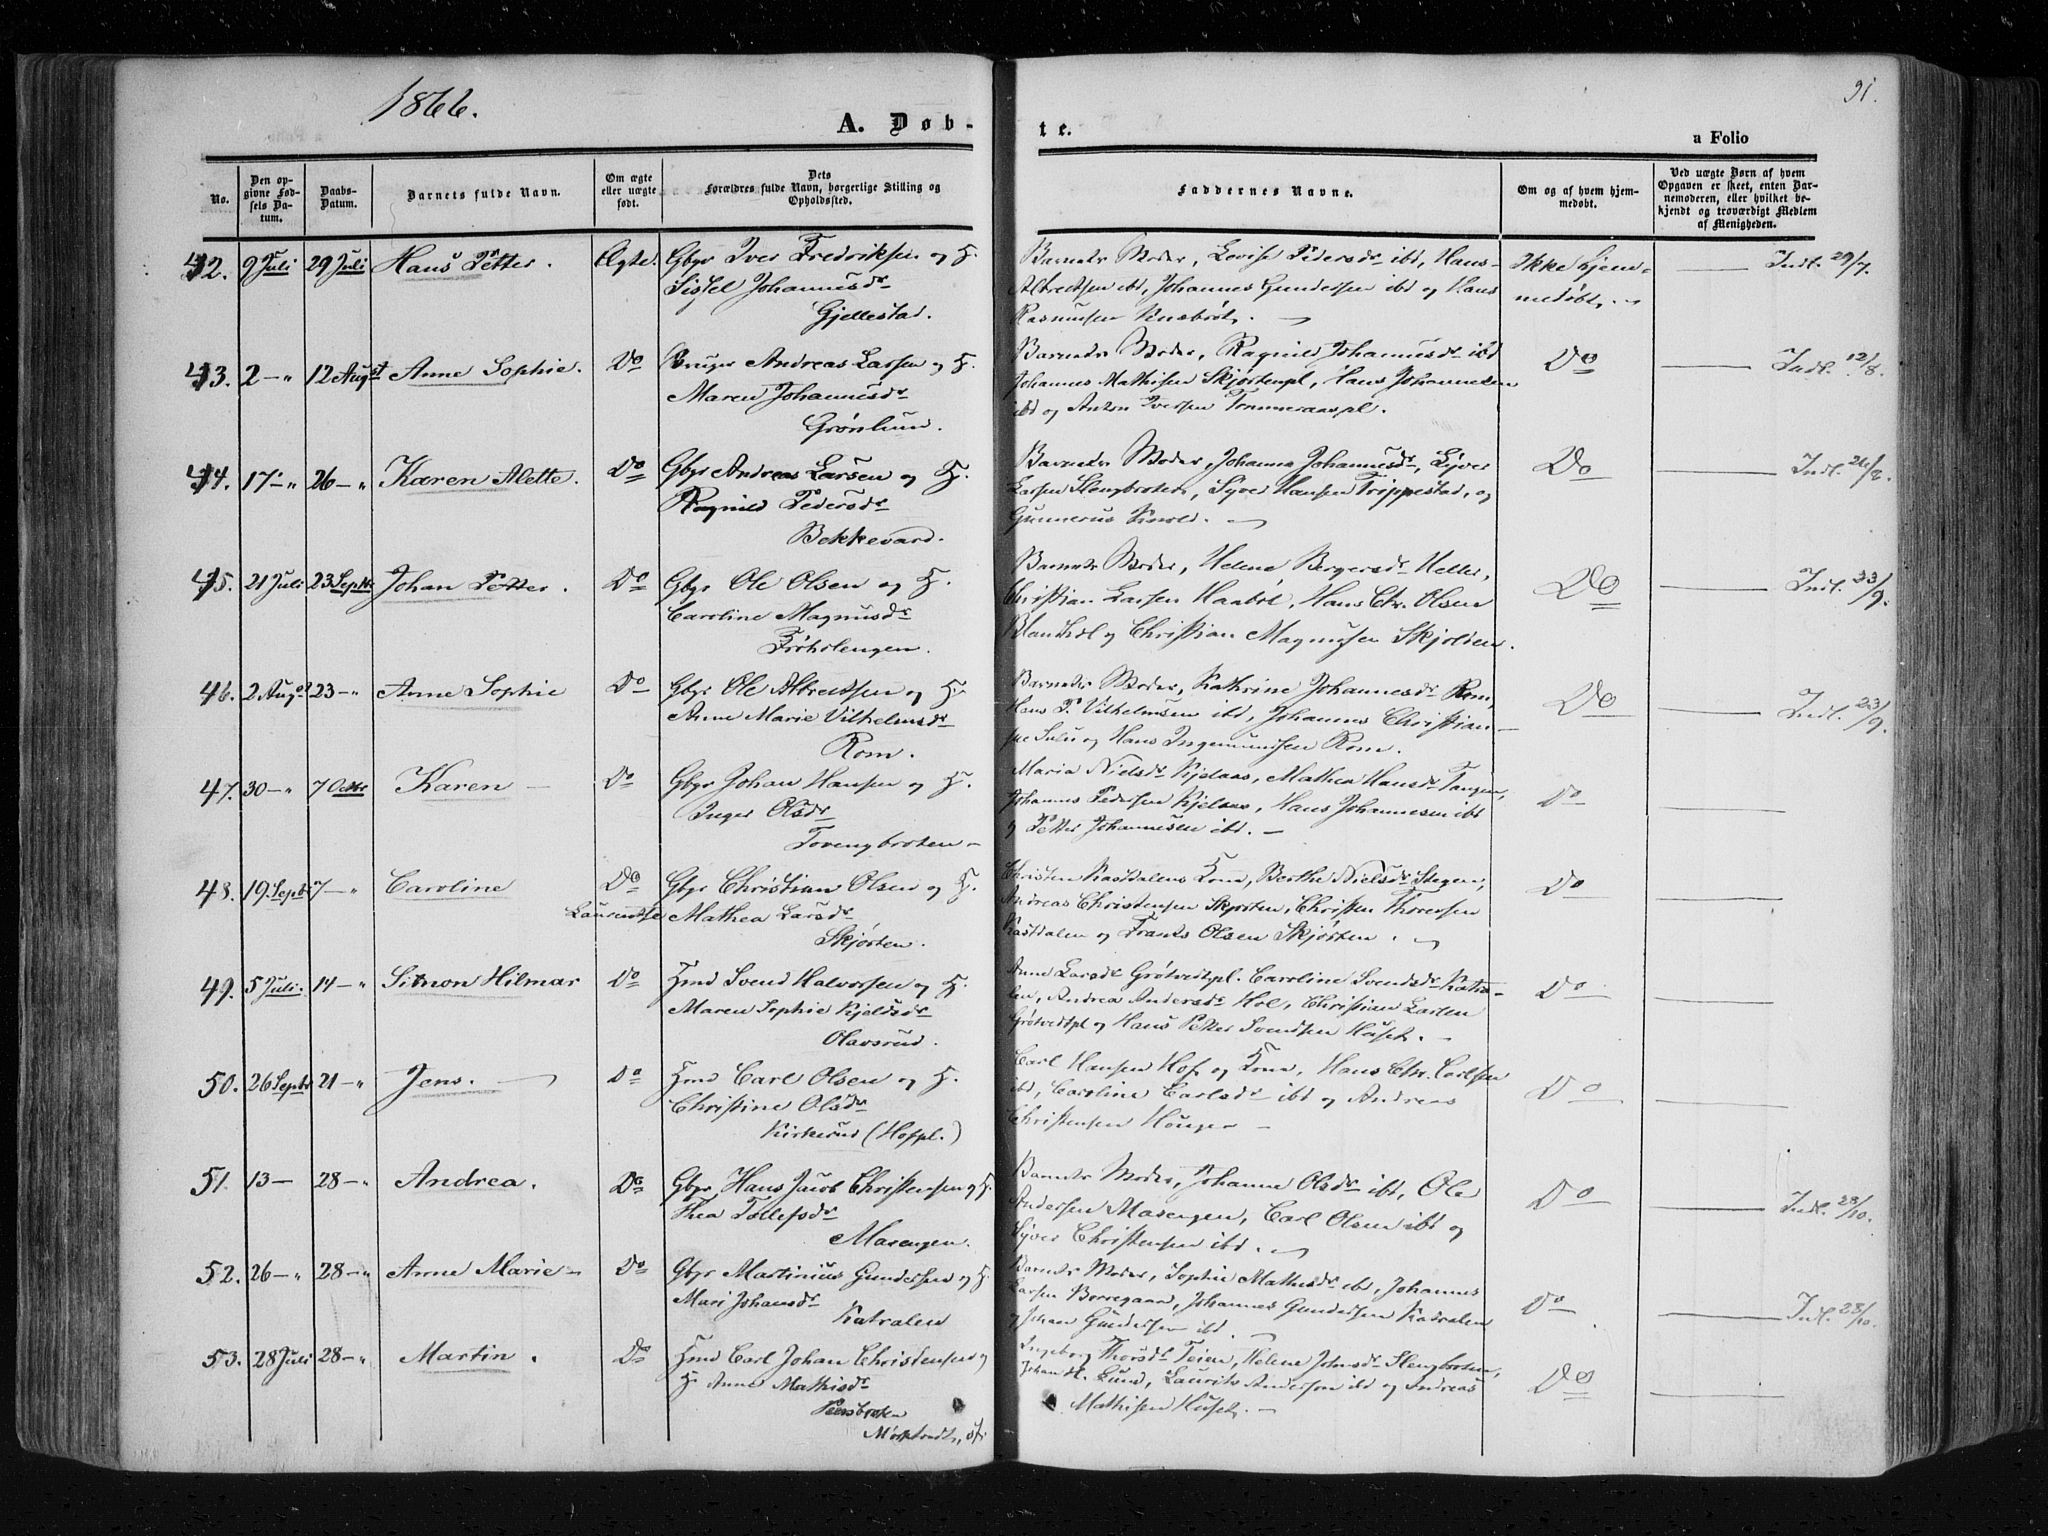 1866.
91.
A. Døb-
te.
a Folio
No.
Den op-
givne Fød-
sels Da-
tum.
Daabs-
Datum.
Barnets fulde Navn.
Om ægte
eller uægte
født.
Dets
Forældres fulde Navn, borgerlige Stilling og
Opholdssted.
Faddernes Navne.
Om og af hvem hjem-
medøbt.
Ved uægte Børn af hvem
Opgaven er skeet, enten Bar-
nemoderen, eller hvilket be-
kjendt og troværdigt Medlem
af Menigheden.
42. 9 Juli 29 Juli Hans Petter. Ægte. Gbgr Iver Fredriksen og H.
Sissel Johannesdr
Gjellestad.
Barnets Moder, Lovise Pedersdr ibd, Hans
Albretsen ibd, Johannes Gundersen ibd og Hans
Rasmusen
Ikke hjem-
medøbt.
Indl. 29/7.
43. 2 - " 12 August Anne Sophie. Do Bruger Andreas Larsen og H.
Maren Johannesdr
Grønlund.
Barnets Moder, Ragnild Johannesdr ibd
Johannes Mathisen Skjørtenpl, Hans Johannesen
ibd og Anton Iversen
Do
Indl. 12/8.
44. 17 - " 26 - " Karen Alette. Do Gbgr Andreas Larsen og H.
Ragnild Pedersdr
Bekkevard.
Barnets Moder, Johanna Johannesdr, Syver
Larsen Slengbroten, Syver Hansen Trippestad, og
Gunnerus Knold.
Do
Indl. 26/8.
45. 21 Juli 23 Septbr Johan Petter. Do Gbgr Ole Olsen og H.
Caroline Magnusdr
Barnets Moder, Helene Bergersdr Heller,
Christian Larsen Haabøl, Hans Chr. Olsen
og Christian Magnusen Skjolden.
Do
Indl. 23/9.
46. 2 Aug 23 - " Anne Sophie Do Gbgr Ole Albretsen og H.
Anne Marie Vilhelmsdr
Rom.
Barnets Moder, Kathrine Johannesdr Rom,
Hans P. Vilhelmsen ibd, Johannes Christian-
sen Sulu og Hans Ingemundsen Rom.
Do
Indl. 23/9.
47. 30 - " 7 Octbr Karen Do Gbgr Johan Hansen og H.
Inger Olsdr
Tovengbroten
Maria Nielsdr Kjelaas, Mathea Hansdr Tangen,
Johannes Pedersen Kjelaas, Hans Johannesen ibd
og Petter Johannesen ibd.
Do
48. 19. Septbr 7 - " Caroline
Laurentse
Do Gbgr Christian Olsen og H.
Mathea Larsdr
Skjørten.
Christen Kastdalens Kone, Berthe Nielsdr Stegen,
Andreas Christensen Skjørten, Christen Thoresen
Kastdalen og Frants Olsen Skjørten.
Do
49. 5 Juli. 14 - " Simon Hilmar Do Hmd Svend Halvorsen og H.
Maren Sophie Kjeldsdr
Olavsrud.
Anne Larsdr Grøtvedtpl. Caroline Svendsdr Katra-
len, Andrea Andersdr Hol, Christian Larsen
Grøtvedtpl og Hans Petter Svendsen Huset.
Do
50. 26 Septbr 21 - " Jens. Do Hmd Carl Olsen og H.
Christine Olsdr
Kirkerud (Hofpl.)
Carl Hansen Hof og Kone, Hans Chr. Carlsen
ibd, Caroline Carlsdr ibd og Andreas
Christensen Houger
Do
51. 13 - 28 - " Andrea. Do Gbgr Hans Jacob Christensen og H.
Thea Tollefsdr
Masengen.
Barnets Moder, Johanne Olsdr ibd, Ole
Andersen Masengen, Carl Olsen ibd og
Syver Christensen ibd.
Do
Indl. 28/10.
52. 26 - " 28 - " Anne Marie Do Gbgr Martinius Gundersen og H.
Mari Johansdr
Katralen
Barnets Moder, Sophie Mathisdr ibd, Johannes
Larsen Borregaard, Johannes Gundersen Katralen
og Johan Gundersen ibd.
Do
Indl. 28/10.
53. 28 Juli 28 - " Martin. Do Hmd Carl Johan Christensen og
H. Anne Mathisdr
Ingeborg Thorsdr Teien, Helene Johnsdr Slengbroten,
Johan H. Lund, Laurits Andersen ibd og Andreas
Mathisen Huset.
Do